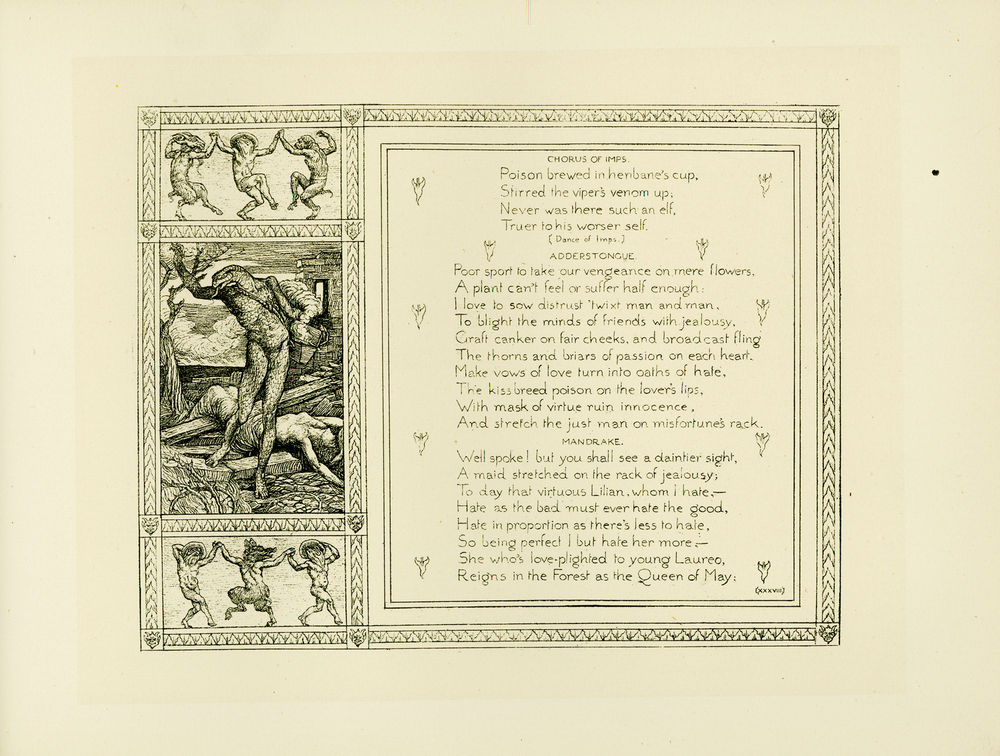 CHORUS OF IMPS.
Poison brewed in henbane's cup,
Stirred the viper's venom up;
Never was there such an elf,
Truer to his worser self.
(Dance of Imps.)
ADDERSTONGUE
Poor sport to take our vengeance on mere flowers,
A plant can't feel or suffer half enough:
I love to sow distrust 'twixt man and man,
To blight the minds of friends with jealousy,
Graft canker on fair cheeks, and broadcast fling
The thorns and briars of passion on each heart.
Make vows of love turn into oaths of hate,
The kiss breed poison on the lover's lips,
With mask of virtue ruin innocence,
And stretch the just man on misfortune's rack.
MANDRAKE.
Well spoke! but you shall see a daintier sight,
A maid stretched on the rack of jealousy;
To day that virtuous Lilian, whom I hate,—
Hate as the bad must ever hate the good,
Hate in proportion as there's less to hate,
So being perfect I but hate her more;—
She who's love-plighted to young Laureo,
Reigns in the Forest as the Queen of May;
(XXXVIII)